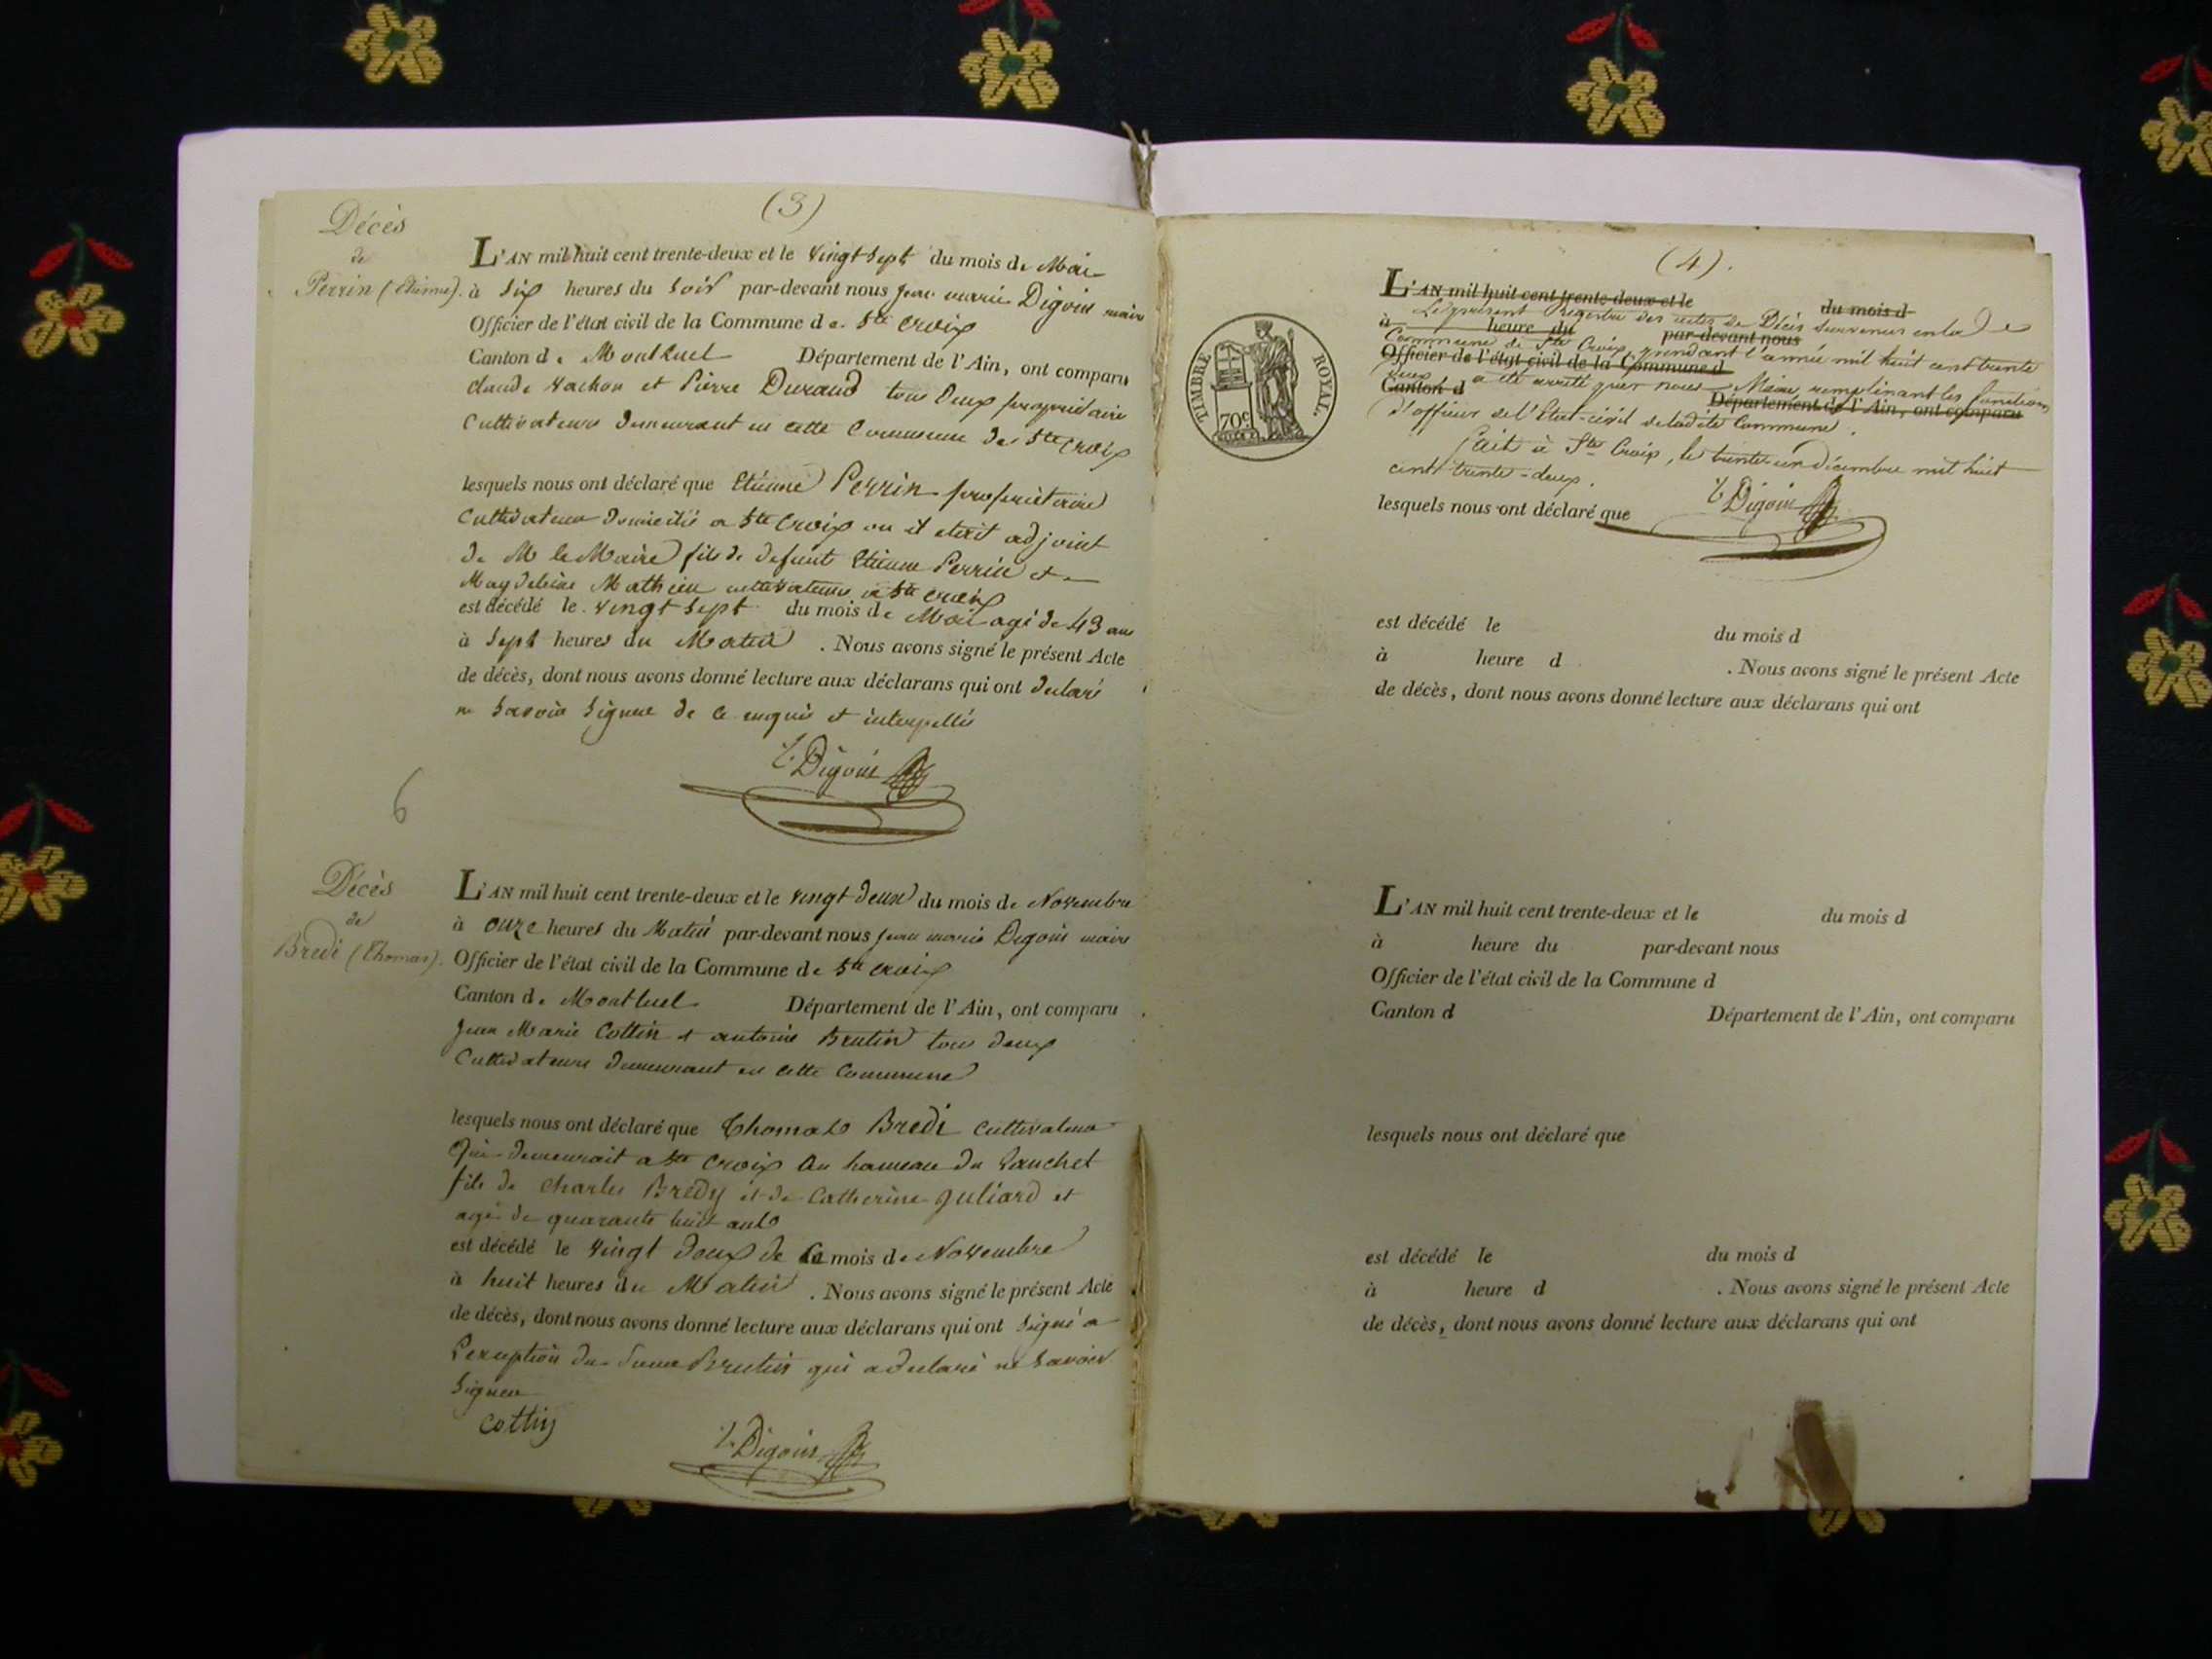 (3)
Décès
de
Perrin (Etienne).
L'AN mil huit cent trente-deux et le vingt sept du mois de Mai
à six heures du soir par-devant nous jean marie Digoin maire
Officier de l'état civil de la Commune de Ste Croix
Canton de Montluel Département de l'Ain, ont comparu
claude vachon et Pierre Durand tous deux propriétaire
Cultivateurs demeurant en cette Commune de Ste Croix
lesquels nous ont déclaré que Etienne Perrin propriétaire
Cultivateur domicilié a Ste Croix ou il etait adjoint
de M le Maire fils de defunt Etienne Perrin et
Magdeleine Mathieu cultivateurs a Ste Croix
est décédé le vingt sept du mois de Mai agé de 43 ans
à sept heures du Matin . Nous avons signé le présent Acte
de décès, dont nous avons donné lecture aux déclarans qui ont declaré
ne savoir signer de ce enquis et interpellés
Digoin
6
Décès
de
Bredi (Thomas).
L'AN mil huit cent trente-deux et le vingt deux du mois de Novembre
à onze heures du Matin par-devant nous jean marie Digoin maire
Officier de l'état civil de la Commune de Ste Croix
Canton de Montluel Département de l'Ain, ont comparu
Jean Marie Cottin et antoine Brutin tous deux
Cultivateurs demeurant en cette Commune
lesquels nous ont déclaré que Thomas Bredi cultivateur
Qui demeurait a Ste Croix au hameau du
fils de Charles Bredy et de Catherine Juliard et
agé de quarante huit ans
est décédé le vingt deux de ce mois de Novembre
à huit heures du Matin . Nous avons signé le présent Acte
de décès, dont nous avons donné lecture aux déclarans qui ont signé a
L'exception du Brutin qui a declaré ne savoir
signer
Cottin
Digoin
(4).
TIMBRE ROYAL.
70c
L'AN mil huit cent trente-deux et le du mois d
Le présent Registre des actes de Décès survenus en la
à heure du par-devant nous
Commune de Ste Croix, pendant l'année mil huit cent trente
Officier de l'état civil de la Commune d
deux, a été arrêté par nous Maire, remplissant les fonctions
Canton d Département de l'Ain, ont comparu
d'officier de l'Etat-civil de ladite Commune.
Fait à Ste Croix, le trente un décembre mil huit
cent trente-deux.
Digoin
lesquels nous ont déclaré que
est décédé le du mois d
à heure d . Nous avons signé le présent Acte
de décès, dont nous avons donné lecture aux déclarans qui ont
L'AN mil huit cent trente-deux et le du mois d
à heure du par-devant nous
Officier de l'état civil de la Commune d
Canton d Département de l'Ain, ont comparu
lesquels nous ont déclaré que
est décédé le du mois d
à heure d . Nous avons signé le présent Acte
de décès, dont nous avons donné lecture aux déclarans qui ont